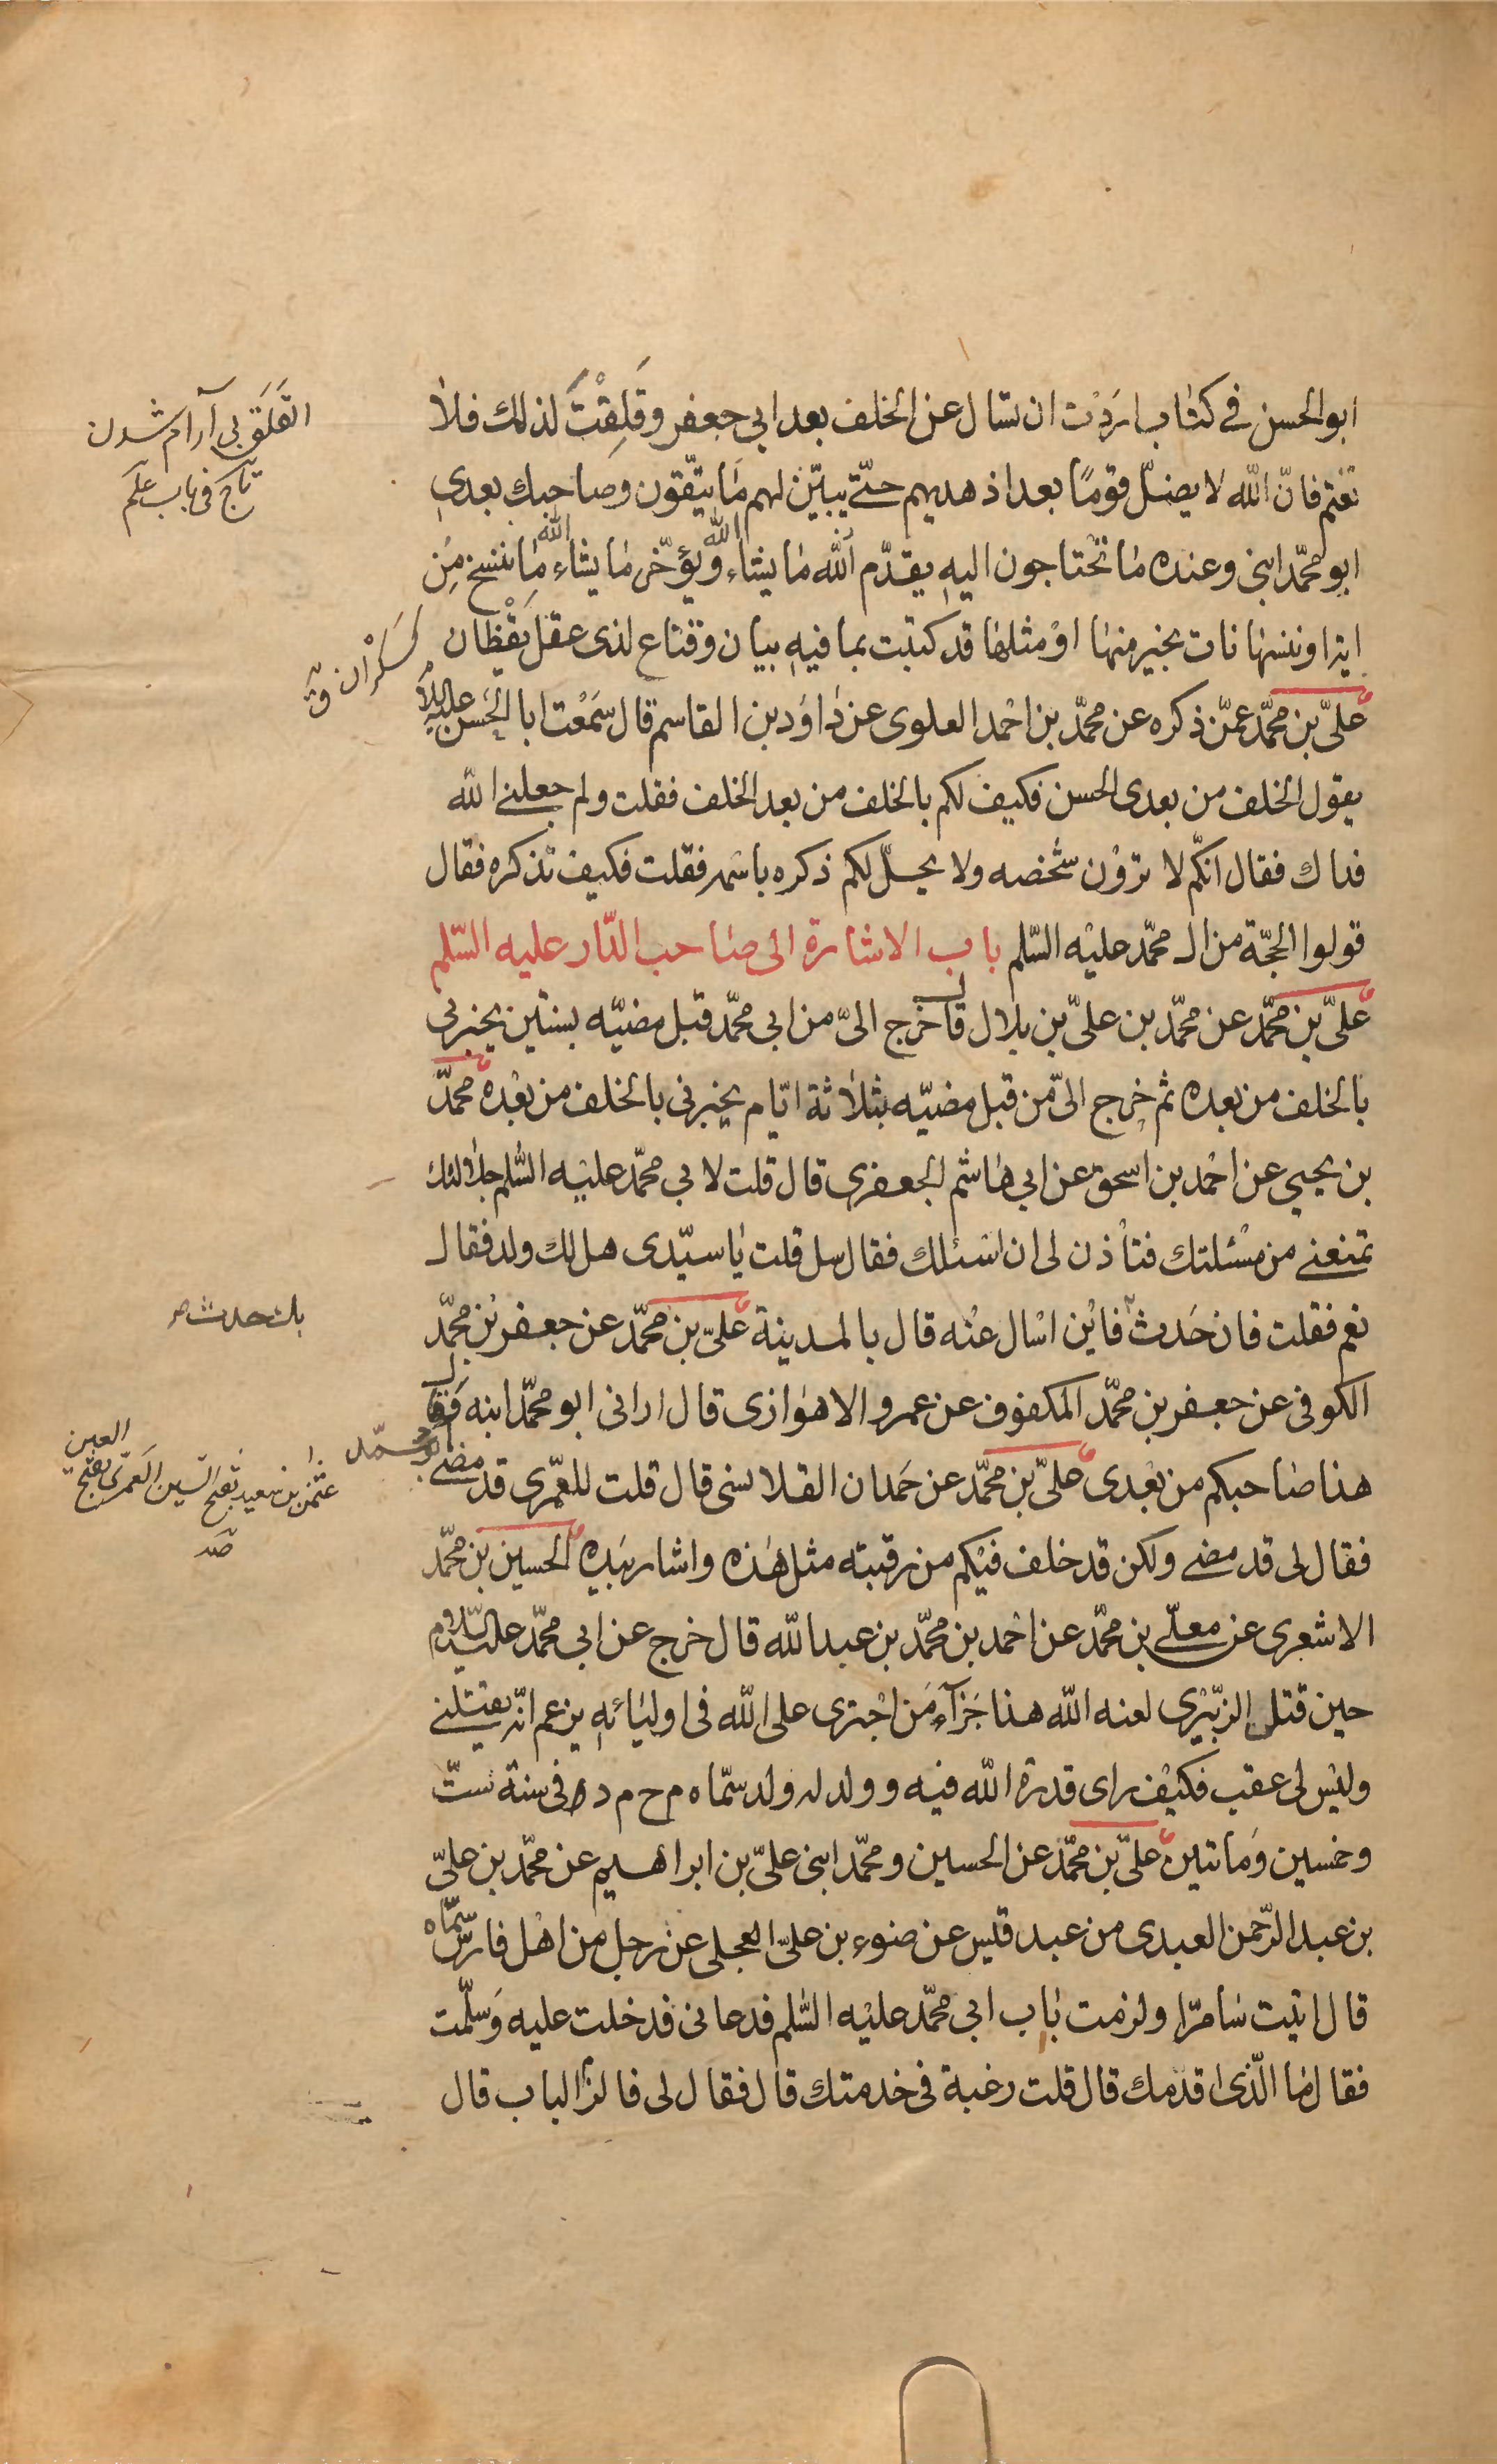 ابو الحسن في كتاب اردت ان تسال عن الخلف بعد ابي جعفر وقَلِقْتَ لذلك فلا
تغتم فانّ الله لا يضلّ قومًا بعد اذ هديهم حتّى يبيّن لهم ما يتّقون وصاحبك بعدي
ابو محمّد ابني وعنده ما تحتاجون اليه يقدّم الله ما يشاء ويؤخّر ما يشاء الله ما ننسخ مِن
اية او ننسها نات بخير منها او مثلها قد كتبت بما فيه بيان وقناع لذى عقل يَقْظان
علىّ بن محمّد عمّن ذكره عن محمّد بن احمد العلوى عن داود بن القاسم قال سمعت ابا الحسن عليه السلام
يقول الخلف من بعدى الحسن فكيف لكم بالخلف من بعد الخلف فقلت ولم جعلني الله
فداك فقال انكّم لا ترَوْن شخصه ولا يحلّ لكم ذكره باسمه فقلت فكيف نذكره فقال
قولوا الحجّة من ال محمّد عليه السّلم باب الاشارة الى صاحب الدّار عليه السّلم
علىّ بن محمّد عن محمّد بن علىّ بن بلال قال خرج الىّ من ابي محمّد قبل مضيّه بسنتين يخبرني
بالخلف من بعده ثم خرج الىّ من قبل مضيّه بثلاثة ايّام يخبرنى بالخلف من بعده محمّد
بن يحيى عن احمد بن اسحق عن ابي هاشم الجعفري قال قلت لابي محمّد عليه السّلم جلالتك
تمنعني من مسئلتك فتأذن لى ان اسئلك فقال سل قلت يا سيّدى هل لك ولد فقال
نعم فقلت فان حَدث فاين اسال عنه قال بالمدينة علىّ بن محمّد عن جعفر بن محمّد
الكوفى عن جعفر بن محمّد المكفوف عن عمرو الاهوازى قال ارانى ابو محمّد ابنه وقال
هذا صاحبكم من بعدى علىّ بن محمّد عن حَمدان القلانسى قال قلت للعمرى قد مضى ابو محمّد
فقال لى قد مضى ولكن قد خلف فيكم من رقبته مثل هذه واشار بيده الحسين بن محمّد
الاشعرى عن معلّى بن محمّد عن احمد بن محمّد بن عبد الله قال خرج عن ابي محمّد عليه السّلام
حين قتل الزبيْري لعنه الله هذا جَزآء مَن اجترى على الله فى اوليائه يزعم انّه يقتلني
وليس لى عقب فكيف راى قدرة الله فيه وولد له ولد سمّاه م ح م د فى سنة ستّ
وخمسين ومائتين علىّ بن محمّد عن الحسين ومحمّد ابنى علىّ بن ابراهيم عن محمّد بن علىّ
بن عبد الرّحمن العبدى من عبد قيس عن ضوء بن علىّ العجلى عن رجل من اهل فارس سمّاه
قال اتيت سامرّا ولزمت باب ابي محمّد عليه السّلم فدعانى فدخلت عليه وسلّمت
فقال ما الّذى اقدمك قال قلت رغبة فى خدمتك قال فقال لى فالزم الباب قال
القَلَق بى آرام شدن
تاج فى باب عَلِمَ
كسَكْران ق
بك حدث صر
عثمن بن سعيد بفتح السين العَمرى بفتح العين
صد